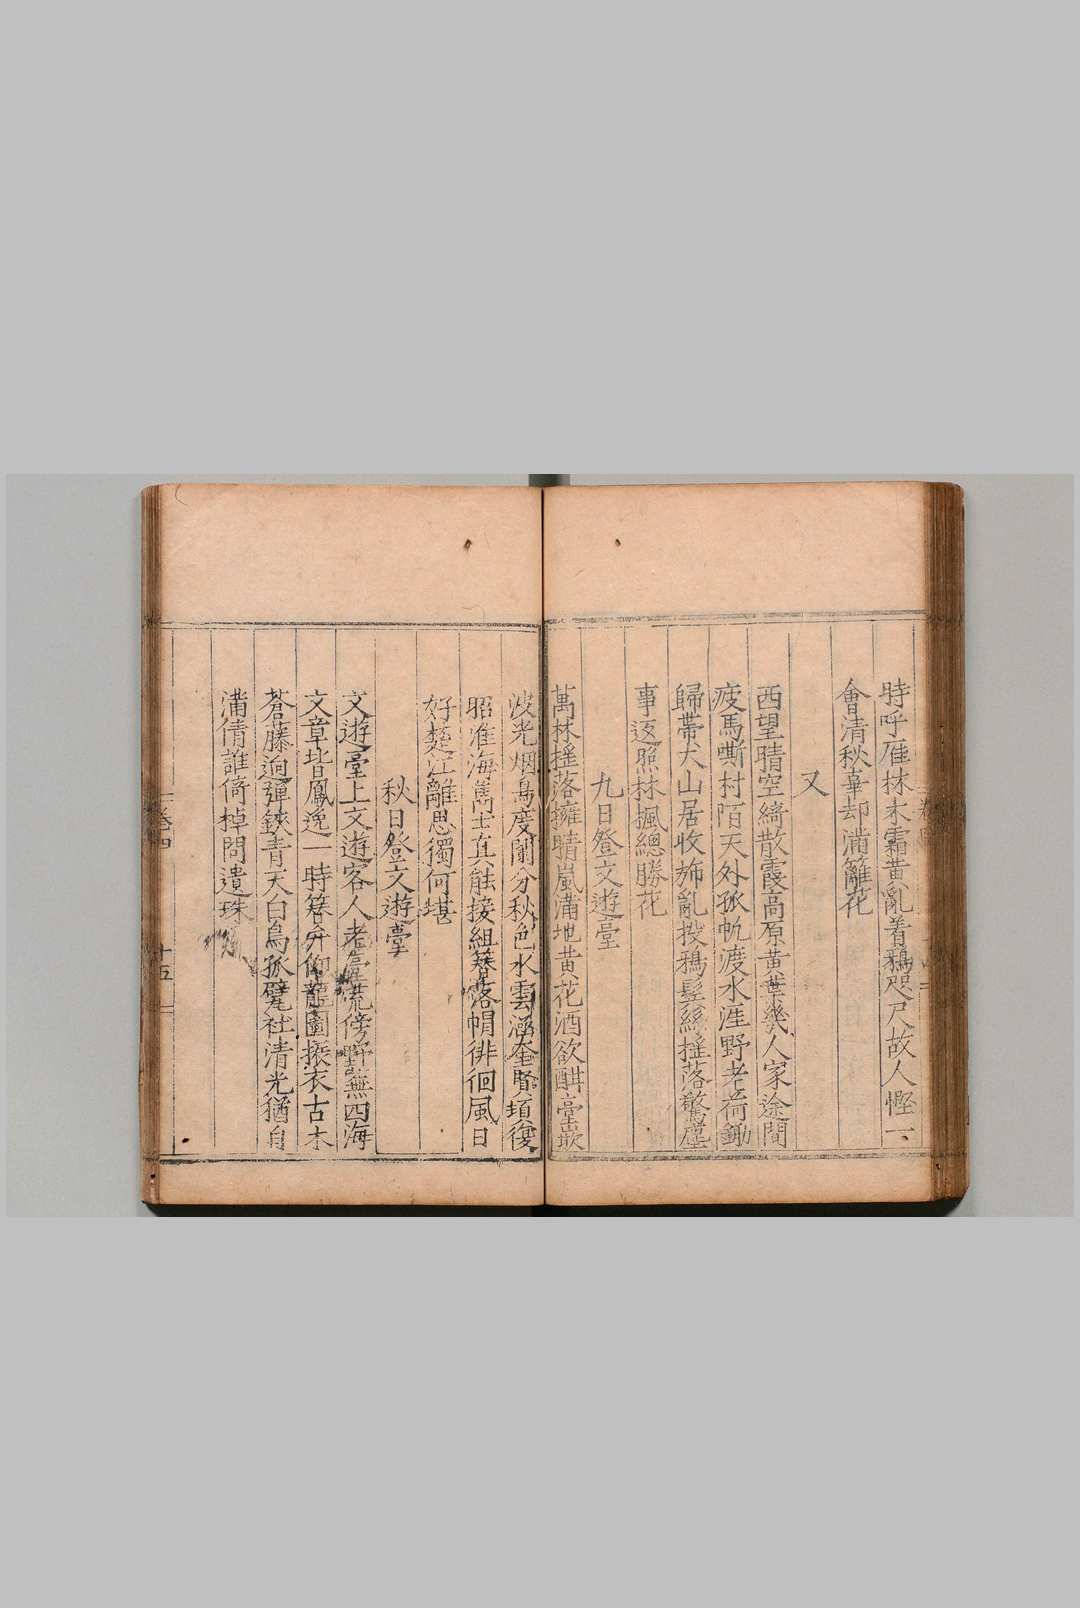 時呼雁林末霜黄亂着鴉咫尺故人慳一
會清秋華却滿籬花
又
西望晴空綺散霞高原黄葉幾人家途間
疲馬嘶村陌天外孤帆渡水涯野老荷鋤
歸帶犬山居收斾亂投鴉鬂絲揺落驚塵
事返照林楓總勝花
九日登文遊臺
萬林揺落擁晴嵐滿地黄花酒欲酣臺嵌
波光烟鳥度闌分秋色水雲涵奎賢頃復
昭淮海雋士真能接組簪落帽徘徊風日
好楚江離思獨何堪
秋日登文遊臺
文遊臺上文遊客人老臺荒傍野蕪四海
文章皆鳳逸一時簪弁仰龍圖振衣古木
蒼藤逈彈鋏青天白鳥孤甓社清光猶自
滿倩誰倚棹問遺珠
卷四
十五